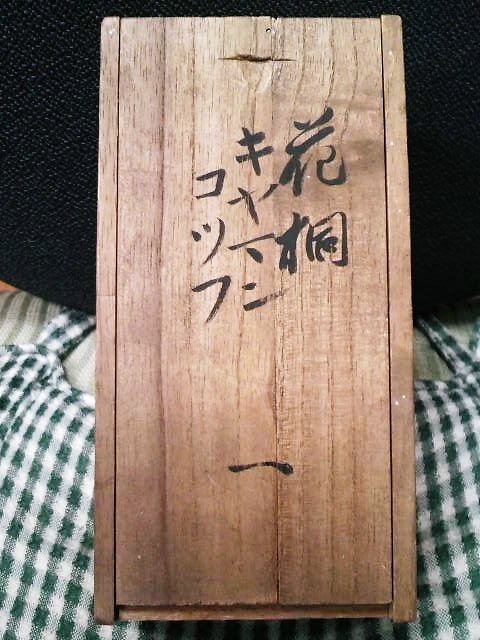 花桐
キヤマン
コツフ
一